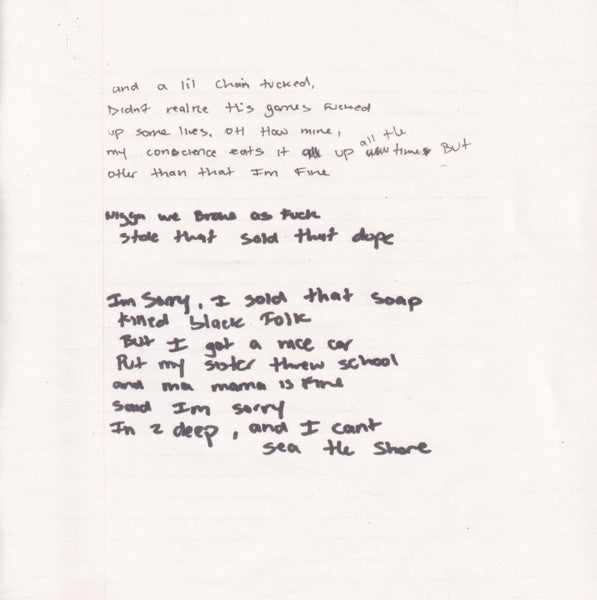 and a lil chain tucked,
Didn't realize this games fucked
up some lives. other than mine,
my conscience eats it up all the times But
other than that Im Fine
Nigga we Broke as Fuck
stole that sold that dope
Im Sorry, I sold that soap
killed black Folk
But I got a nice car
Put my sister threw school
and ma mama is Fine
Said Im sorry
In 2 deep, and I cant
sea the Shore